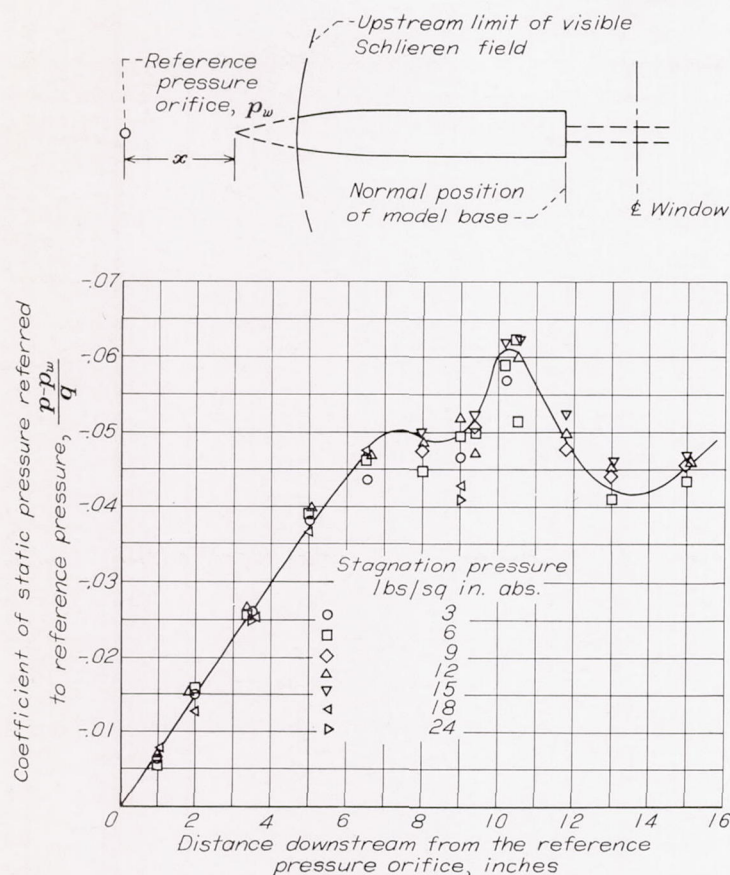 Upstream limit of visible
Schlieren field
Reference
pressure
orifice, p_w
x
Normal position
of model base
℄ Window
Coefficient of static pressure referred
to reference pressure, p-p_w / q
-.07
-.06
-.05
-.04
-.03
-.02
-.01
Stagnation pressure
lbs/sq in. abs.
3
6
9
12
15
18
24
0 2 4 6 8 10 12 14 16
Distance downstream from the reference
pressure orifice, inches